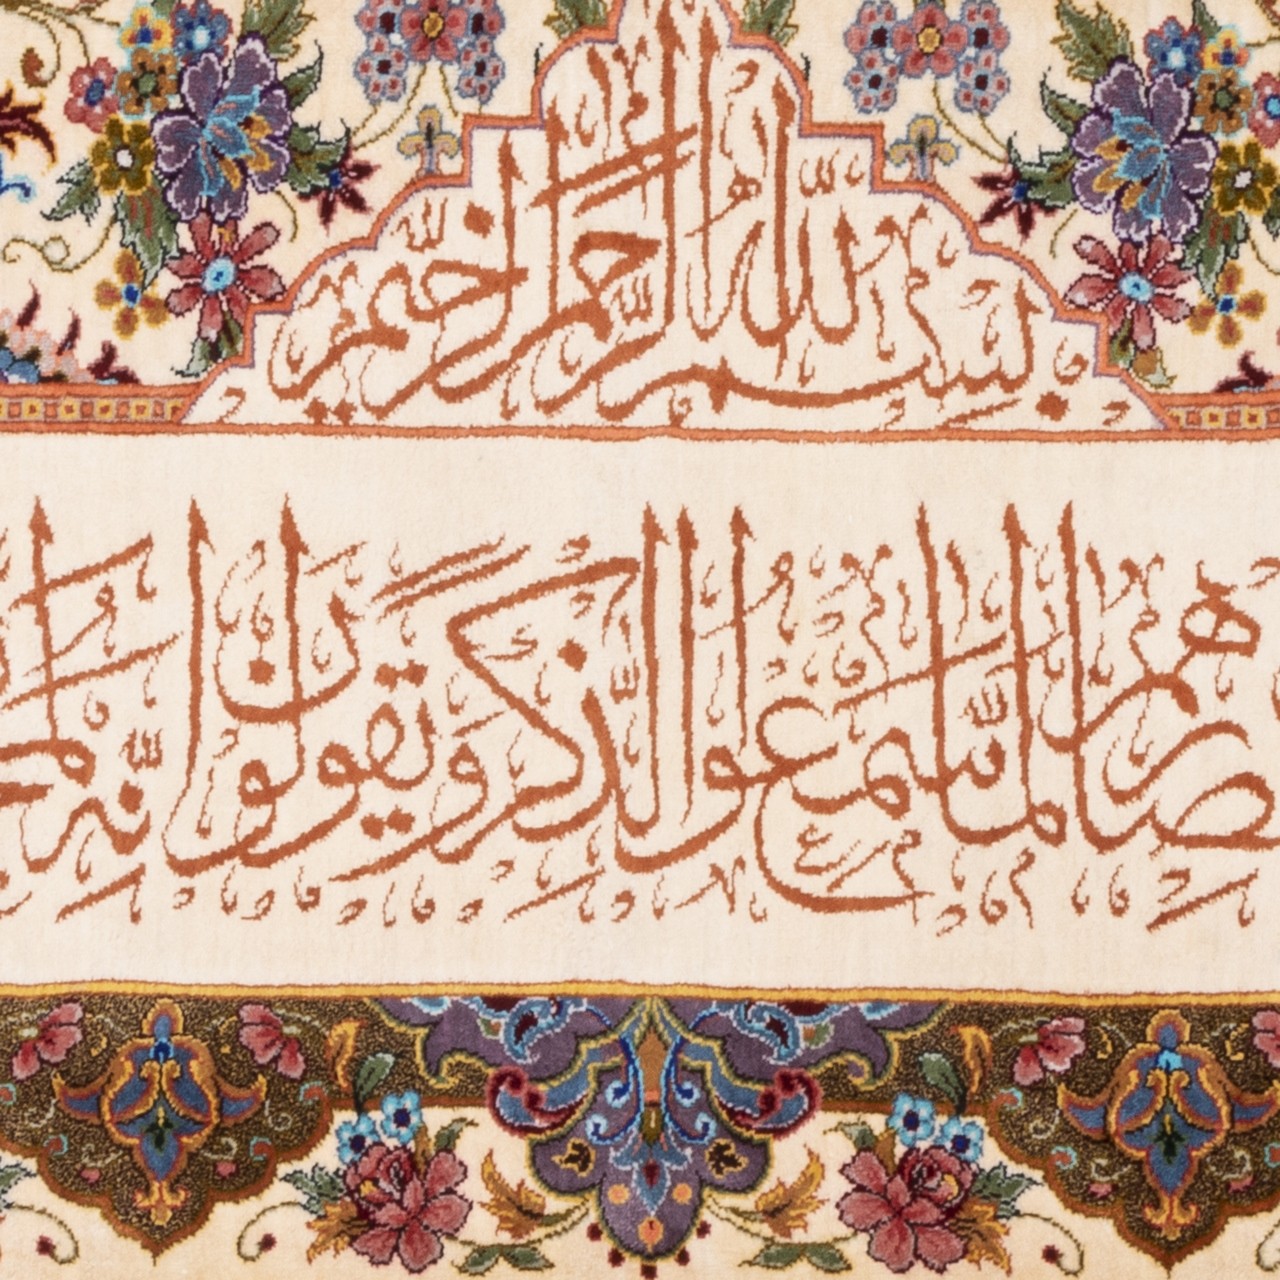 بسم الله الرحمن الرحيم
صارهم لما سمعوا الذكر ويقولون انه